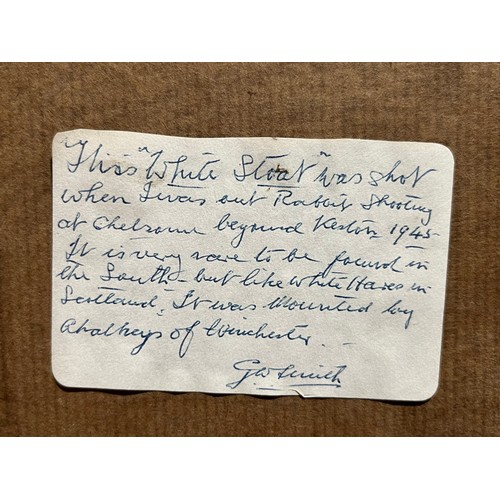 This "White Stoat" was shot
when I was out Rabbit Shooting
at Chelsome beyond Keston 1945
It is very rare to be found in
the South but like White Hares in
Scotland. It was Mounted by
Chalkeys of Winchester.
G W Smith